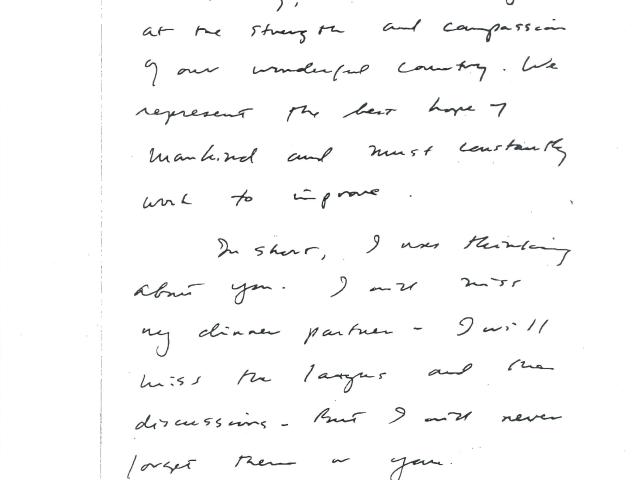 at the strength and compassion
of our wonderful country. We
represent the best hope of
mankind and must constantly
work to improve.
In short, I was thinking
about you. I will miss
my dinner partner - I will
miss the laughs and the
discussions - But I will never
forget them or you.